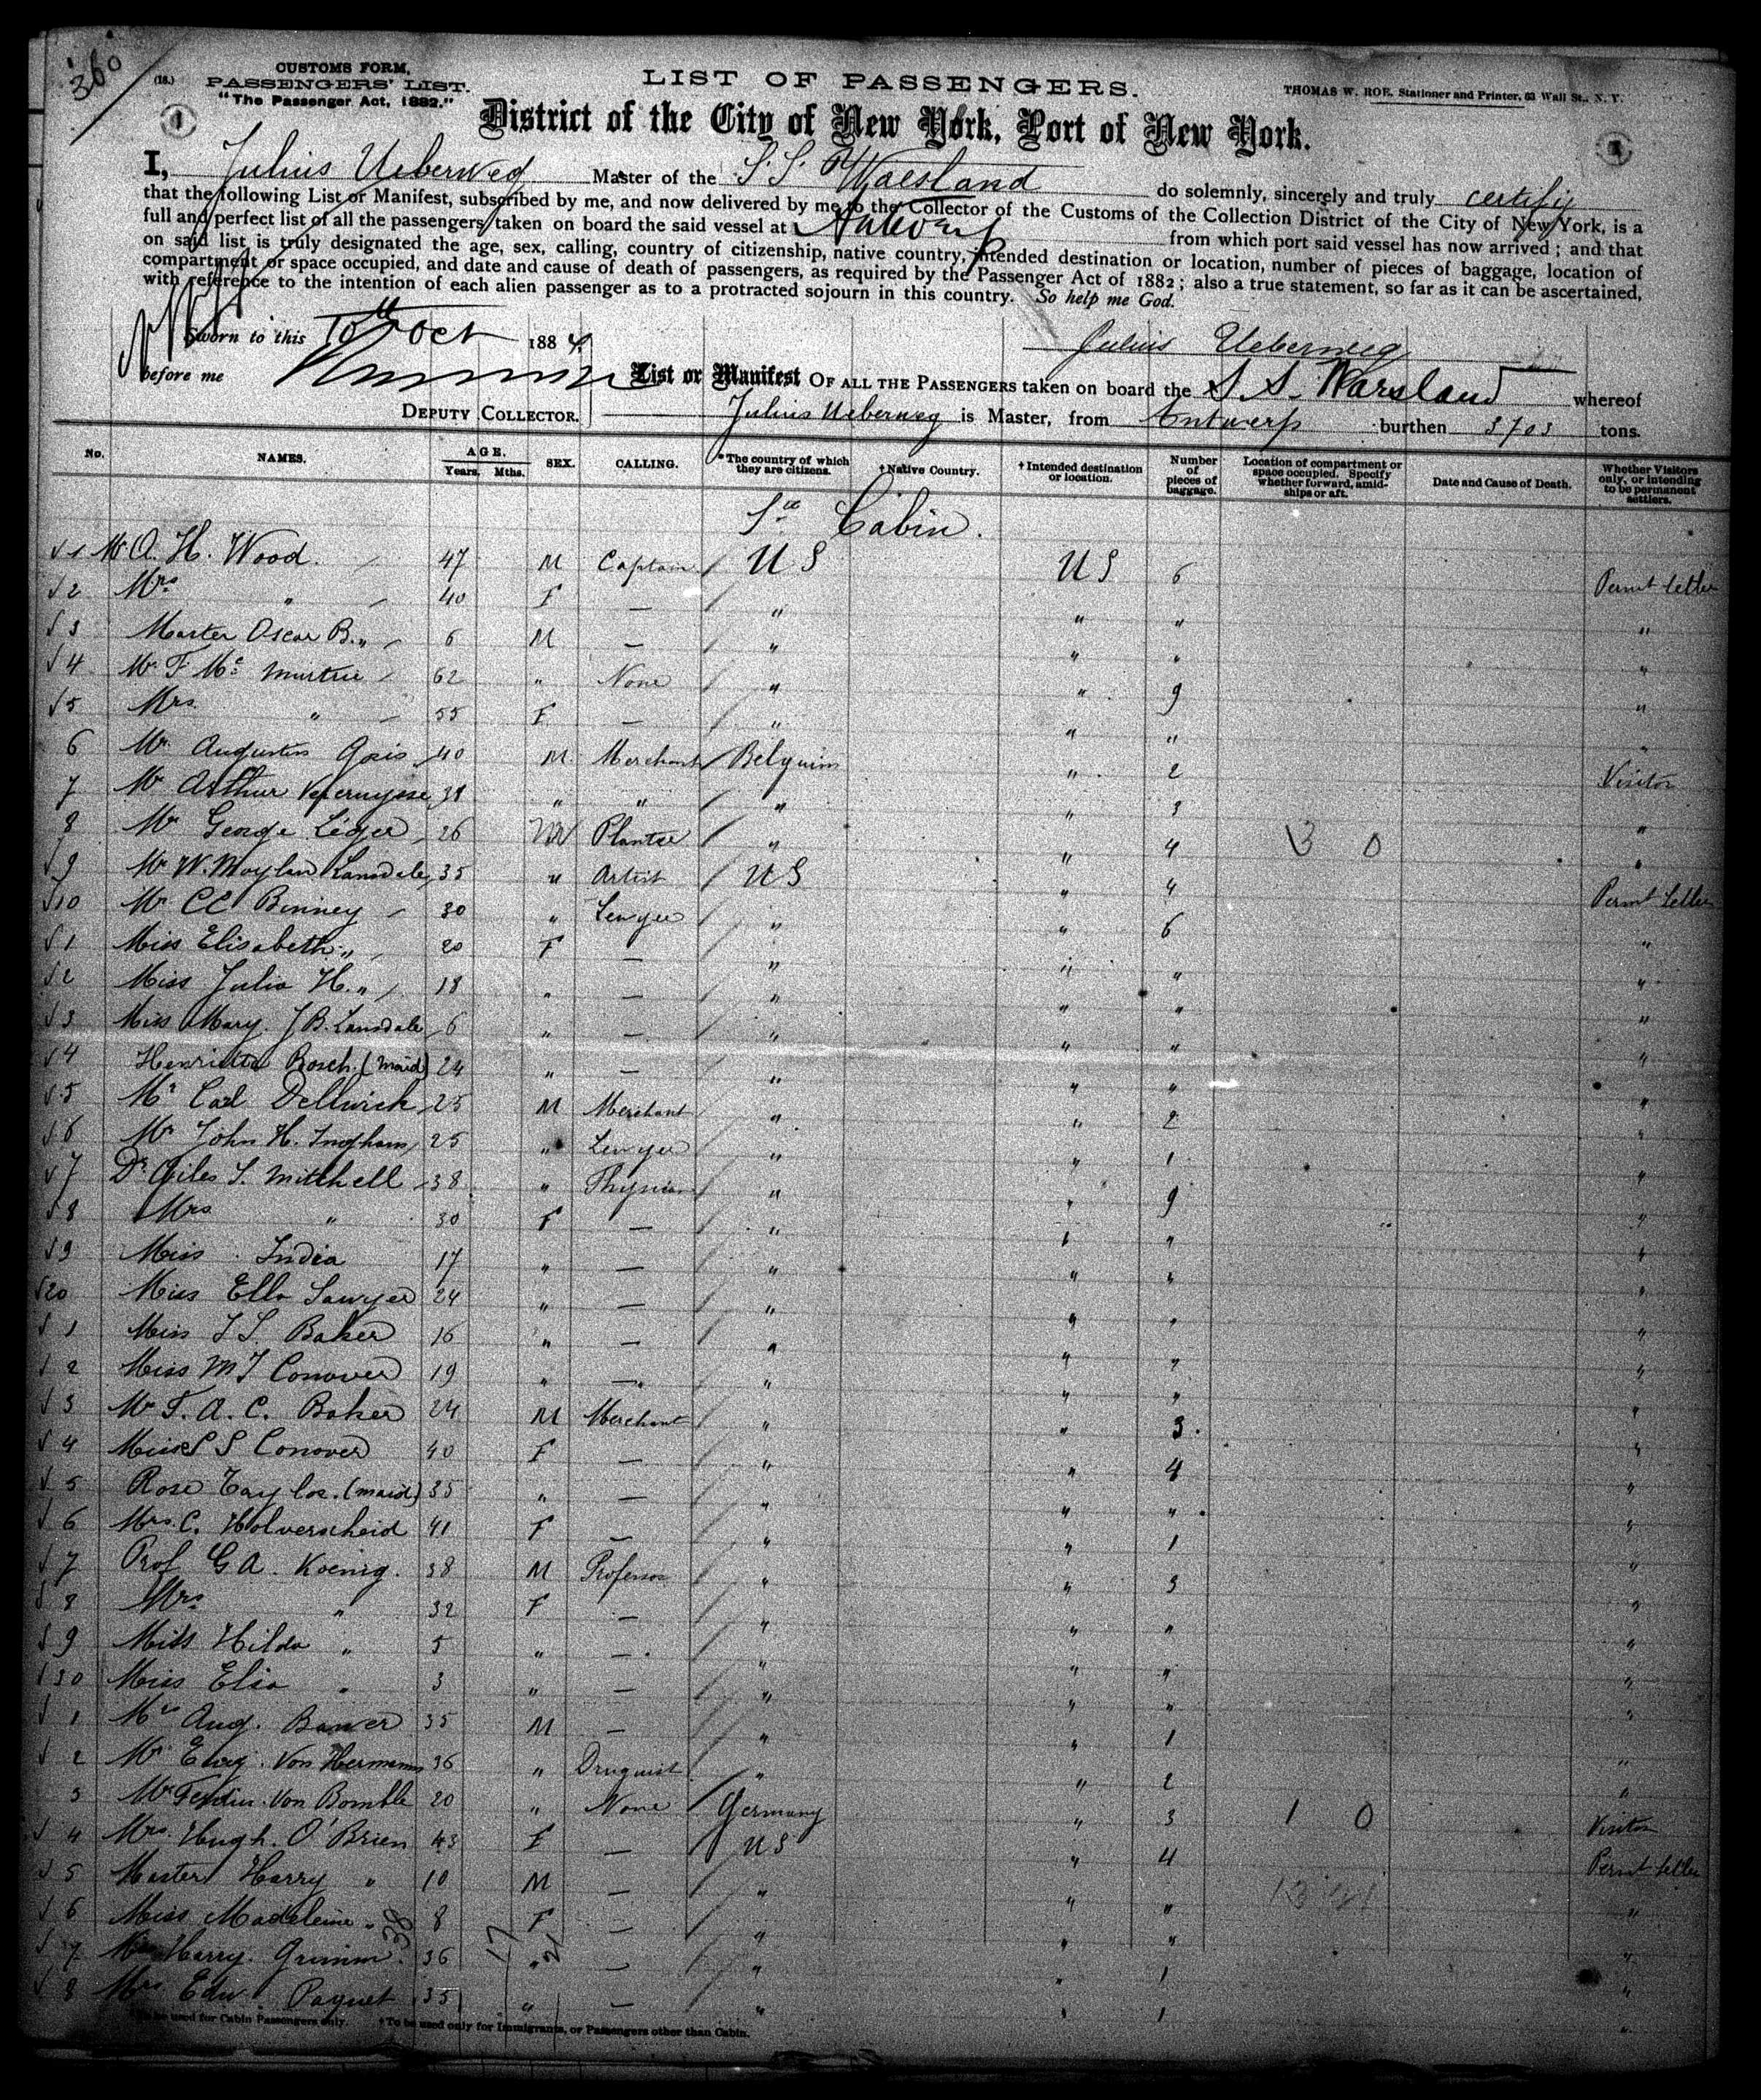 360
(18.)
CUSTOMS FORM,
PASSENGERS' LIST.
"The Passenger Act, 1882."
LIST OF PASSENGERS.
THOMAS W. ROE, Stationer and Printer, 63 Wall St., N. Y.
District of the City of New York, Port of New York.
I, Julius Ueberweg Master of the S.S. Waesland do solemnly, sincerely and truly certify
that the following List or Manifest, subscribed by me, and now delivered by me to the Collector of the Customs of the Collection District of the City of New York, is a
full and perfect list of all the passengers taken on board the said vessel at Antwerp from which port said vessel has now arrived; and that
on said list is truly designated the age, sex, calling, country of citizenship, native country, intended destination or location, number of pieces of baggage, location of
compartment or space occupied, and date and cause of death of passengers, as required by the Passenger Act of 1882; also a true statement, so far as it can be ascertained,
with reference to the intention of each alien passenger as to a protracted sojourn in this country. So help me God.
Sworn to this 10th Oct 1884
Julius Ueberweg
before me
DEPUTY COLLECTOR.
List or Manifest OF ALL THE PASSENGERS taken on board the S.S. Waesland whereof
Julius Ueberweg is Master, from Antwerp burthen 3703 tons.
No. NAMES. AGE. Years. Mths. SEX. CALLING. *The country of which they are citizens. †Native Country. †Intended destination or location. Number of pieces of baggage. Location of compartment or space occupied. Specify whether forward, amidships or aft. Date and Cause of Death. Whether Visitors only, or intending to be permanent settlers.
1st Cabin.
1 Mr A. H. Wood 47 M Captain U S U S 6
2 Mrs " 40 F — " " " "
3 Master Oscar B. " 6 M — " " " "
4 Mr F. Mc Murtrie 62 " None " " 9 "
5 Mrs " 55 F — " " " "
6 Mr Augustin 40 M Merchant Belguim " 2 Visitor
7 Mr Arthur " " " " 3 "
8 Mr George Léger 26 M " " 4 3 0 "
9 Mr W. Moylan Lansdale 35 " Artist U S " 4
10 Mr CC Binney 30 " Lawyer " " 6 "
1 Miss Elisabeth " 20 F — " " " "
2 Miss Julia H. " 18 " — " " " "
3 Miss Mary J B. Lansdale 6 " — " " " "
4 Henrietta Bosch (maid) 24 " — " " " "
5 Mr Carl Dellwick 25 M Merchant " " 2 "
6 Mr John H. Ingham 25 " Lawyer " " 1 "
7 Dr Giles S. Mitchell 38 " " " 9 "
8 Mrs " 30 F — " " " "
9 Miss India 17 " — " " " "
20 Miss Ella Sawyer 24 " — " " " "
1 Miss Baker 16 " — " " " "
2 Miss Conover 19 " — " " " "
3 Mr F. A. C. Baker 24 M Merchant " " 3 "
4 Miss Conover 40 F — " " 4 "
5 Rose Taylor (maid) 35 " — " " " "
6 Mrs C. Holverscheid 41 F — " " 1 "
7 Prof G A. Koenig 38 M Professor " " 3 "
8 Mrs " 32 F — " " " "
9 Miss Hilda " 5 " — " " " "
30 Miss Elsa " 3 " — " " " "
1 Mr Aug. 35 M — " " 1 "
2 Mr Von Hermann 36 " Druguist " " 2 "
3 Mr Von 20 " None Germany " 3 1 0 Visitor
4 Mrs Hugh O'Brien 43 F — U S " 4
5 Master Harry " 10 M — " " " "
6 Miss Madeleine " 8 F — " " " "
7 Harry Grimm 36 " — " " 1 "
8 Mrs Edw. Paquet 35 " — " " 1 "
38 17 21
*To be used for Cabin Passengers only. †To be used only for Immigrants, or Passengers other than Cabin.